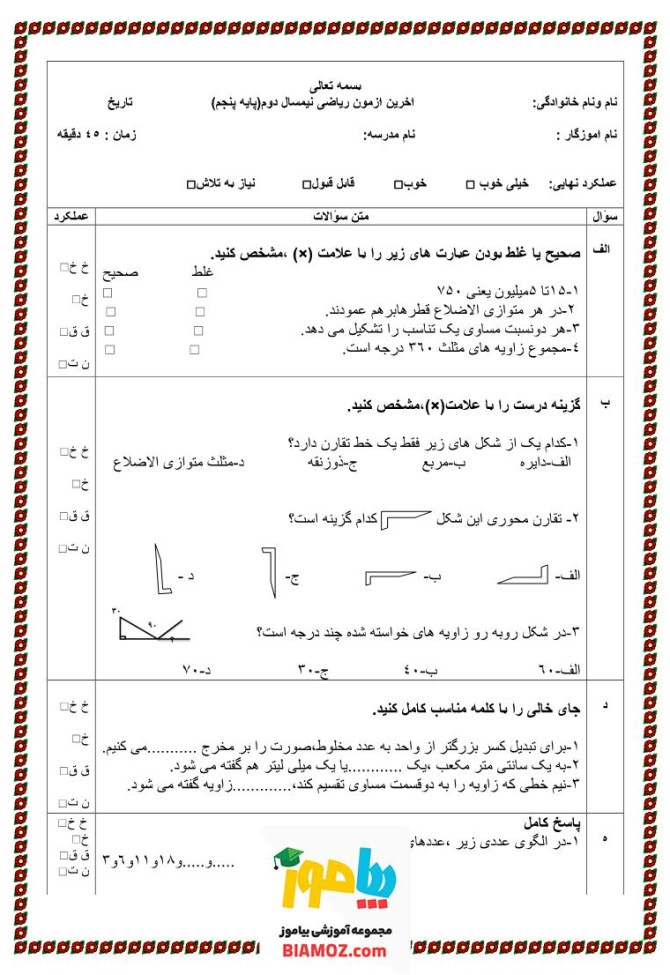 بسمه تعالی
نام ونام خانوادگی: اخرین ازمون ریاضی نیمسال دوم(پایه پنجم) تاریخ
نام اموزگار : نام مدرسه: زمان : ٤٥ دقیقه
عملکرد نهایی: خیلی خوب □ خوب□ قابل قبول□ نیاز به تلاش□
سؤال متن سؤالات عملکرد
الف صحیح یا غلط بودن عبارت های زیر را با علامت (×) ،مشخص کنید.
غلط صحیح خ خ□
۱-۱۵تا ۵میلیون یعنی ۷۵۰ □ □
۲-در هر متوازی الاضلاع قطرهابرهم عمودند. □ □ خ□
۳-هر دونسبت مساوی یک تناسب را تشکیل می دهد. □ □ ق ق□
٤-مجموع زاویه های مثلث ۳٦۰ درجه است. □ □ ن ت□
ب گزینه درست را با علامت(×)،مشخص کنید.
۱-کدام یک از شکل های زیر فقط یک خط تقارن دارد؟ خ خ□
الف-دایره ب-مربع ج-ذوزنقه د-مثلث متوازی الاضلاع
خ□
۲- تقارن محوری این شکل کدام گزینه است؟ ق ق□
ن ت□
الف- ب- ج- د -
۳۰ ۹۰ ؟
۳-در شکل روبه رو زاویه های خواسته شده چند درجه است؟
الف-٦۰ ب-٤۰ ج-۳۰ د-۷۰
د جای خالی را با کلمه مناسب کامل کنید. خ خ□
خ□
۱-برای تبدیل کسر بزرگتر از واحد به عدد مخلوط،صورت را بر مخرج ...........می کنیم.
۲-به یک سانتی متر مکعب ،یک ............یا یک میلی لیتر هم گفته می شود. ق ق□
۳-نیم خطی که زاویه را به دوقسمت مساوی تقسیم کند،.............زاویه گفته می شود. ن ت□
ه پاسخ کامل خ خ□
۱-در الگوی عددی زیر ،عددهای خ□
۳و٦و۱۱و۱۸و.....و..... ق ق□
ن ت□
بیاموز
مجموعه آموزشی بیاموز
BIAMOZ.com